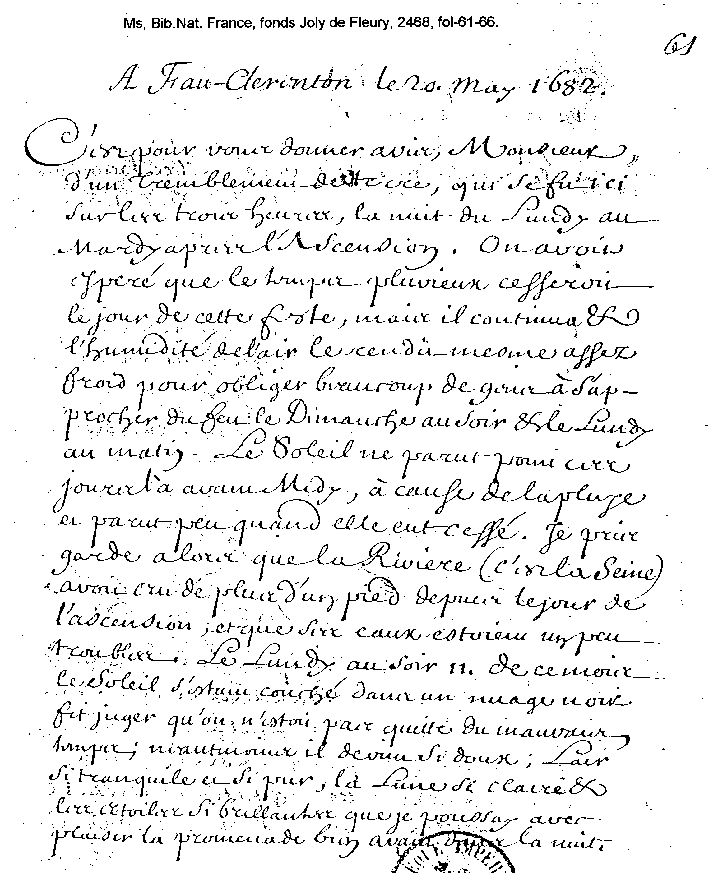 Ms, Bib.Nat. France, fonds Joly de Fleury, 2468, fol-61-66.
61
A Frau-Clerenton le 20. May 1682.
C'est pour vous donner avis, Monsieur,
d'un tremblement de terre, qui se fit ici
sur les trois heures, la nuit du Lundy au
Mardy apres l'Ascension. On avoit
esperé que le temps pluvieux cesseroit
le jour de cette feste, mais il continua &
l'humidité de l'air le rendit mesme assez
froid pour obliger beaucoup de gens à s'ap-
procher du feu le Dimanche au soir & le Lundy
au matin. Le Soleil ne parut point ces
jours là avant Midy, à cause de la pluye
et parut peu quand elle eut cessé. Je pris
garde alors que la Riviere (c'est la Seine)
avoit cru de plus d'un pied depuis le jour de
l'ascension, et que ses eaux estoient un peu
troubles. Le Lundy au soir 11. de ce mois
le Soleil s'estant couché dans un nuage noir
fit juger qu'on n'estoit pas quitte du mauvais
temps; neantmoins il devint si doux; L'air
si tranquile et si pur, la Lune si claire &
les etoiles si brillantes que je poussay avec
plaisir la promenade bien avant dans la nuit.